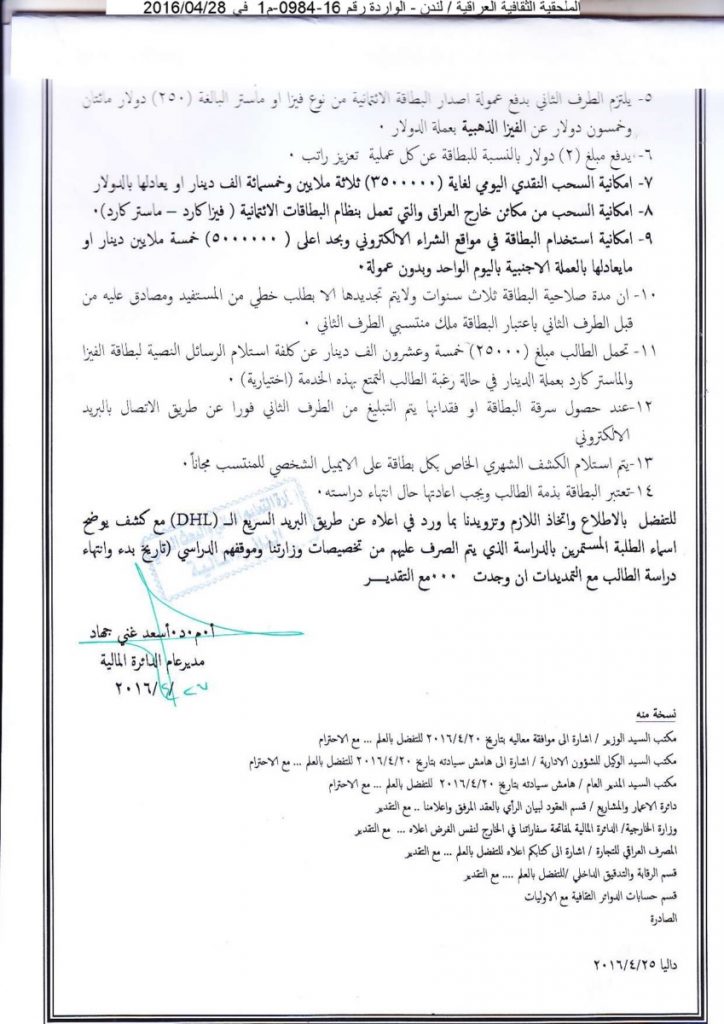 الملحقية الثقافية العراقية / لندن - الواردة رقم 16-0984-م1 في 2016/04/28
٥- يلتزم الطرف الثاني بدفع عمولة اصدار البطاقة الائتمانية من نوع فيزا او ماستر البالغة (٢٥٠) دولار مائتان
وخمسون دولار عن الفيزا الذهبية بعملة الدولار ٠
٦- يدفع مبلغ (٢) دولار بالنسبة للبطاقة عن كل عملية تعزيز راتب ٠
٧- امكانية السحب النقدي اليومي لغاية (٣٥٠٠٠٠٠) ثلاثة ملايين وخمسمائة الف دينار او يعادلها بالدولار
٨- امكانية السحب من مكائن خارج العراق والتي تعمل بنظام البطاقات الائتمانية ( فيزا كارد – ماستر كارد)٠
٩- امكانية استخدام البطاقة في مواقع الشراء الالكتروني وبحد اعلى ( ٥٠٠٠٠٠٠) خمسة ملايين دينار او
مايعادلها بالعملة الاجنبية باليوم الواحد وبدون عمولة٠
١٠- ان مدة صلاحية البطاقة ثلاث سنوات ولايتم تجديدها الا بطلب خطي من المستفيد ومصادق عليه من
قبل الطرف الثاني باعتبار البطاقة ملك منتسبي الطرف الثاني ٠
١١- تحمل الطالب مبلغ (٢٥٠٠٠) خمسة وعشرون الف دينار عن كلفة استلام الرسائل النصية لبطاقة الفيزا
والماستر كارد بعملة الدينار في حالة رغبة الطالب التمتع بهذه الخدمة (اختيارية) ٠
١٢-عند حصول سرقة البطاقة او فقدانها يتم التبليغ من الطرف الثاني فورا عن طريق الاتصال بالبريد
الالكتروني
١٣-يتم استلام الكشف الشهري الخاص بكل بطاقة على الايميل الشخصي للمنتسب مجاناً٠
١٤-تعتبر البطاقة بذمة الطالب ويجب اعادتها حال انتهاء دراسته٠
للتفضل بالاطلاع واتخاذ اللازم وتزويدنا بما ورد في اعلاه عن طريق البريد السريع الـ (DHL) مع كشف يوضح
اسماء الطلبة المستمرين بالدراسة الذي يتم الصرف عليهم من تخصيصات وزارتنا وموقفهم الدراسي (تاريخ بدء وانتهاء
دراسة الطالب مع التمديدات ان وجدت ٠٠٠مع التقديـــر
أ٠م٠د٠أسعد غني جهاد
مديرعام الدائرة المالية
٢٧/٤/٢٠١٦
نسخة منه
مكتب السيد الوزير / اشارة الى موافقة معاليه بتاريخ ٢٠١٦/٤/٢٠ للتفضل بالعلم ... مع الاحترام
مكتب السيد الوكيل للشؤون الادارية / اشارة الى هامش سيادته بتاريخ ٢٠١٦/٤/٢٠ للتفضل بالعلم ... مع الاحترام
مكتب السيد المدير العام / هامش سيادته بتاريخ ٢٠١٦/٤/٢٠ للتفضل بالعلم ... مع الاحترام
دائرة الاعمار والمشاريع / قسم العقود لبيان الرأي بالعقد المرفق واعلامنا .. مع التقدير
وزارة الخارجية/ الدائرة المالية لمفاتحة سفاراتنا في الخارج لنفس الغرض اعلاه ... مع التقدير
المصرف العراقي للتجارة / اشارة الى كتابكم اعلاه للتفضل بالعلم ... مع التقدير
قسم الرقابة والتدقيق الداخلي /للتفضل بالعلم .... مع التقدير
قسم حسابات الدوائر الثقافية مع الاوليات
الصادرة
داليا ٢٠١٦/٤/٢٥